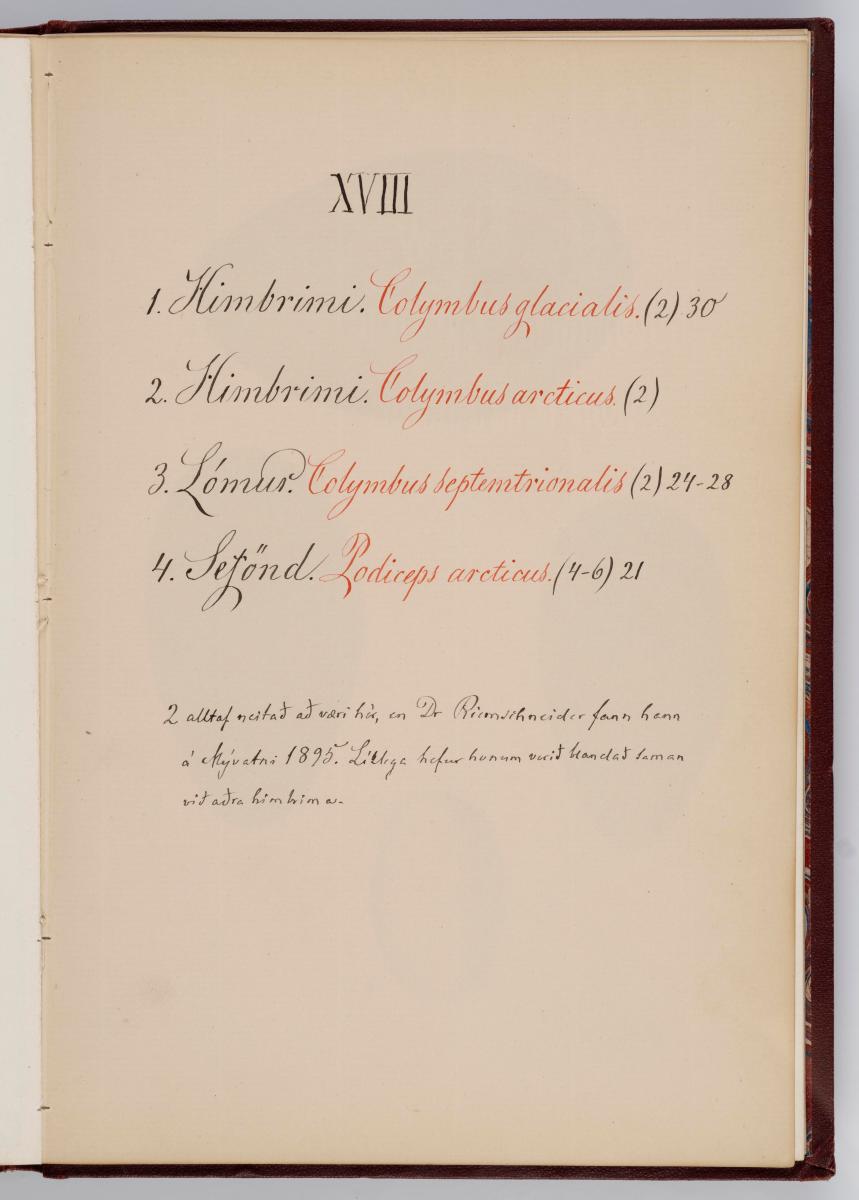 XVIII
1. Himbrimi. Colymbus glacialis. (2) 30
2. Himbrimi. Colymbus arcticus. (2)
3. Lómur. Colymbus septemtrionalis (2) 24-28
4. Sefönd. Podiceps arcticus. (4-6) 21
2 alltaf neitað að væri hér, en Dr Riemschneider fann hann
á Mývatni 1895. Líklega hefur honum verið blandað saman
við aðra himbrima.